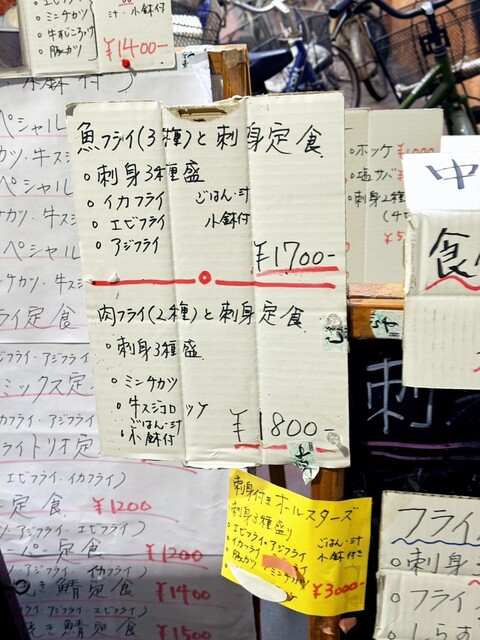 ○エビフライ
○ミンチカツ
○牛すじころっけ
○豚カツ
汁・小鉢付
¥1400-
小鉢付)
魚フライ(3種)と刺身定食
○刺身3種盛
○イカフライ
○エビフライ
○アジフライ
ごはん・汁
小鉢付
¥1700-
肉フライ(2種)と刺身定食
○刺身3種盛
○ミンチカツ
○牛スジコロッケ
○ごはん・汁
小鉢付
¥1800-
刺身付きオールスターズ
○刺身3種盛り
○エビフライ・アジフライ
○イカフライ
○豚カツ
ミンチカツ
ごはん・汁
小鉢付き
¥3000-
ペシャル
カツ・牛ス
ペシャル
ペシャル
ンチカツ・牛ス
ライ定食
フライ・アジフライ
ミックス定
カフライ・アジフライ
ライトリオ定
エビフライ・イカフライ)
定食 ¥1200
・アジフライ・エビフライ)
定食 ¥1200
・アジフライ・イカフライ)
焼き鯖定食 ¥1400
・アジフライ・エビフライ)
焼き鯖定食 ¥1500
○ホッケ
○塩サバ
○刺身2種
中
食
刺
フライ
○刺身
○フライ
しらす